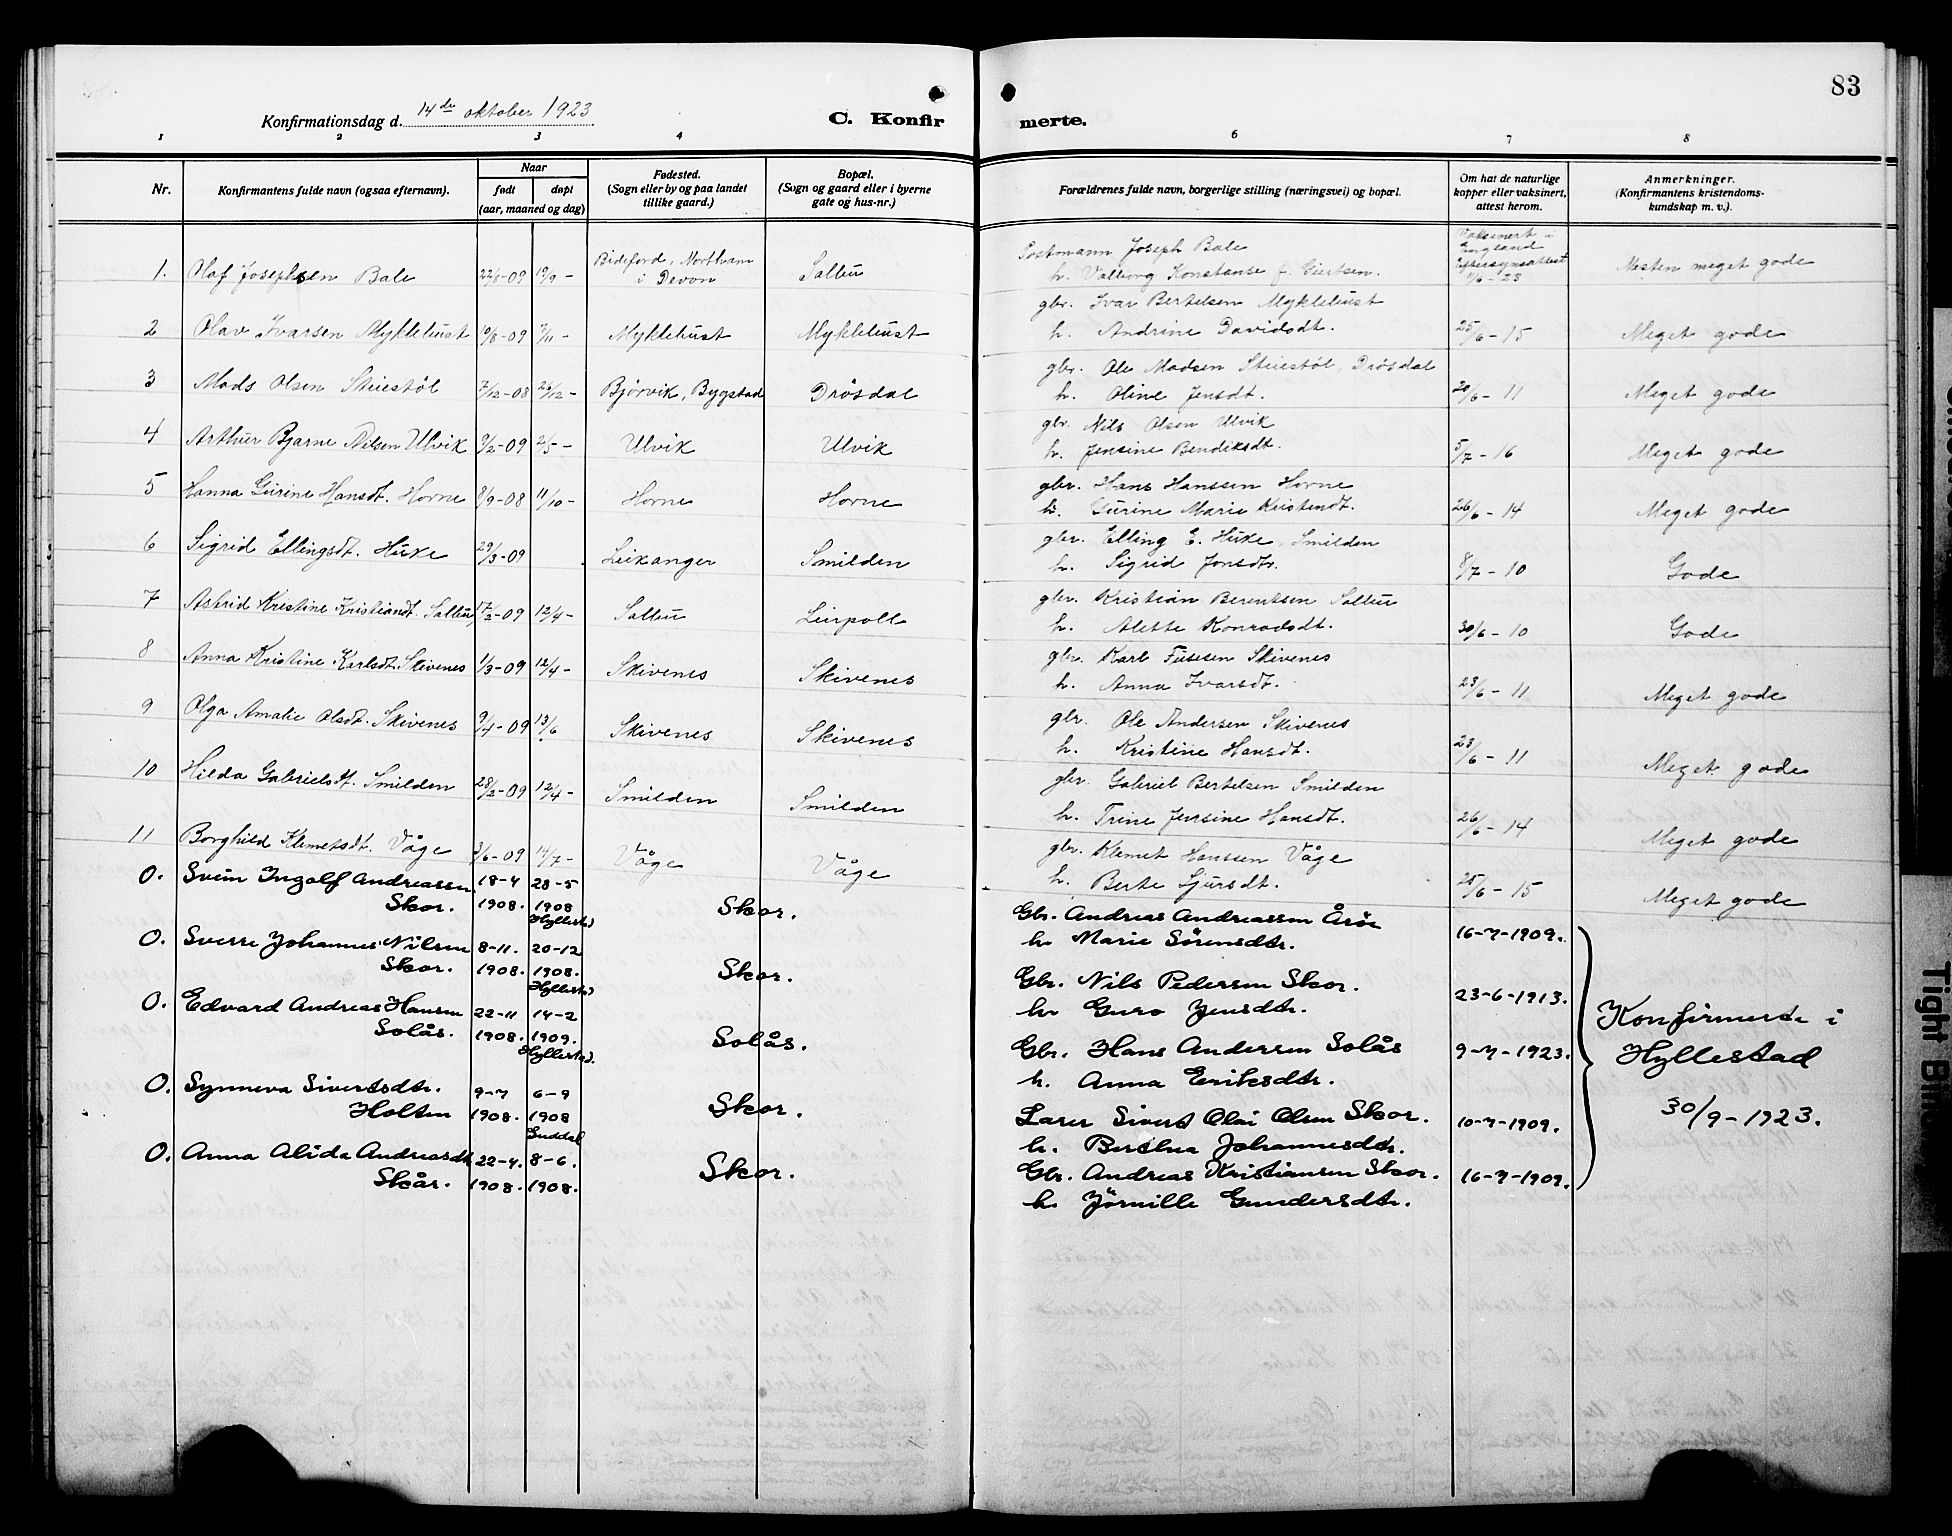 83
Konfirmationsdag d. 14de oktober 1923
C. Konfir merte.
1 2 3 4 6 7 8
Nr.
Konfirmantens fulde navn (ogsaa efternavn).
Naar
født
døpt
(aar, maaned og dag)
Fødested.
(Sogn eller by og paa landet
tillike gaard.)
Bopæl.
(Sogn og gaard eller i byerne
gate og hus-nr.)
Forældrenes fulde navn, borgerlige stilling (næringsvei) og bopæl.
Om hat de naturlige
kopper eller vaksinert,
attest herom.
Anmerkninger.
(Konfirmantens kristendoms-
kundskap m. v.).
1. Olaf Josephsen Bale 22/8-09 19/9- Bideford, Northam i Devon Salbu
Postmann Joseph Bale
h. Valborg Konstanse f. Giertsen.
Vaksinert i
England
Eftersynsattest
1/6-23
Nesten meget gode
2 Olav Ivarsen Myklebust 19/8-09 7/11- Myklebust Myklebust
gbr. Ivar Bertelsen Myklebust
h. Andrine Davidsdt. 25/6-15 Meget gode
3 Mads Olsen Stuestøl 7/12-08 26/12- Bjørvik, Bygstad Drøsdal
gbr. Ole Madsen Stuestøl, Drøsdal
h. Oline Jensdt. 20/6-11 Meget gode
4 Arthur Bjarne Nilsen Ulvik 9/2-09 2/5- Ulvik Ulvik
gbr. Nils Olsen Ulvik
h. Jensine Bendiksdt. 5/7-16 Meget gode
5 Hanna Gurine Hansdt. Horne 8/9-08 11/10- Horne Horne
gbr. Hans Hanssen Horne
h. Gurine Marie Kristendt. 26/6-14 Meget gode
6 Sigrid Ellingsdt. Huke 29/3-09 Leikanger Smilden
gbr. Elling E. Huke, Smilden
h. Sigrid Jonsdtr. 8/7-10 Gode
7 Astrid Kristine Kristiandt. Salbu 17/2-09 12/4- Salbu Leirpoll
gbr. Kristian Berentsen Salbu
h. Alette Konradsdt. 30/6-10 Gode
8 Anna Kristine Karlsdt. Skivenes 1/3-09 12/4- Skivenes Skivenes
gbr. Karl Skivenes
h. Anna Ivarsdt. 23/6-11 Meget gode
9 Olga Amalie Olsdt. Skivenes 9/4-09 13/6 Skivenes Skivenes
gbr. Ole Andersen Skivenes
h. Kristine Hansdt. 23/6-11 Meget gode
10 Hilda Gabrielsdt. Smilden 28/2-09 12/4- Smilden Smilden
gbr. Gabriel Bertelsen Smilden
h. Trine Jensine Hansdt. 26/6-14 Meget gode
11 Borghild Klemetsdt. Våge 3/6-09 14/7- Våge Våge
gbr. Klemet Hanssen Våge
h. Berte Sjursdt. 25/6-15 Meget gode
0. Svein Ingolf Andreassen 18-4 28-5
Skor. 1908. 1908 Skor.
Hyllestad
Gbr. Andreas Andreassen Årøe
h. Marie Sørensdtr. 16-7-1909.
0. Sverre Johannes Nilsen 8-11. 20-12
Skor. 1908. 1908. Skor.
Hyllestad
Gbr. Nils Pedersen Skor.
h. Guro Jensdtr. 23-6-1913.
0. Edvard Andreas Hansen 22-11 14-2
Solås. 1908. 1909. Solås.
Hyllestad.
Gbr. Hans Andersen Solås 9-7-1923.
h. Anna Eriksdtr.
0. Synneva Sivertsdtr. 9-7 6-9
Holten 1908. 1908 Skor.
Guddal
Lærer Sivert Olai Olsen Skor. 10-7-1909.
h. Berthna Johannesdtr.
0. Anna Alida Andreasdtr 22-4. 8-6.
Skår. 1908. 1908. Skor.
Gbr. Andreas Kristiansen Skor. 16-7-1909.
h. Jørnille Gundersdtr.
Konfirmerte i
Hyllestad
30/9-1923.
Tight Bin